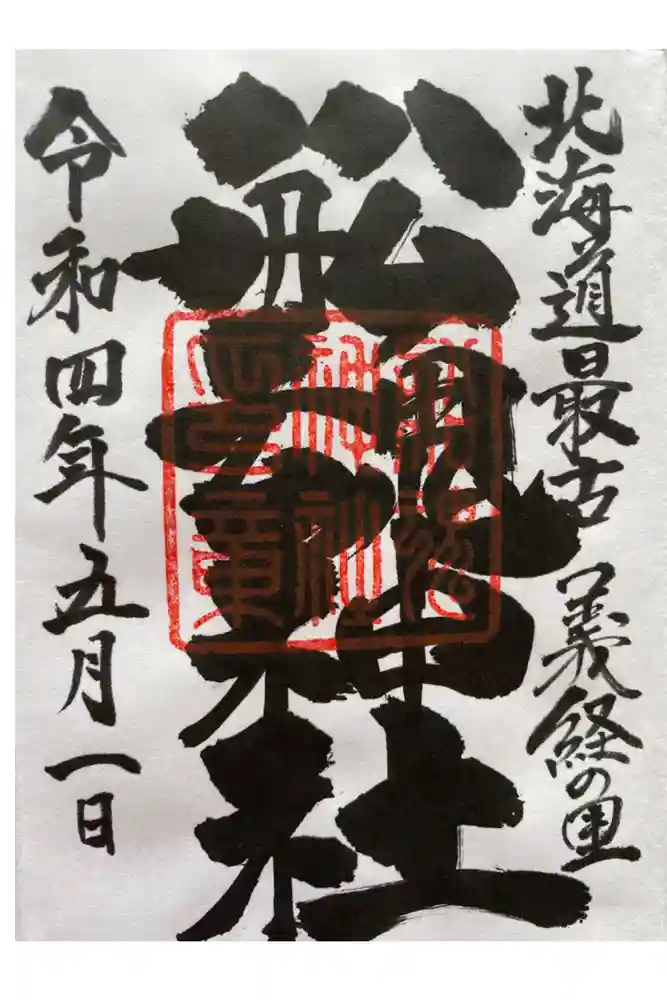 北海道最古 義経の里
舩魂神社
令和四年五月一日